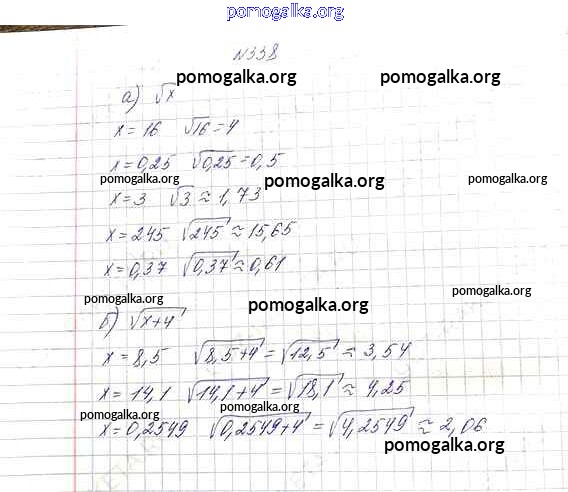 pomogalka.org
№338
pomogalka.org pomogalka.org
а) √x
x = 16 √16 = 4
x = 0,25 √0,25 = 0,5
pomogalka.org pomogalka.org pomogalka.org
x = 3 √3 ≈ 1,73
x = 245 √245 ≈ 15,65
x = 0,37 √0,37 ≈ 0,61
pomogalka.org pomogalka.org
б) √x+4
x = 8,5 √8,5+4 = √12,5 ≈ 3,54
x = 14,1 √14,1+4 = √18,1 ≈ 4,25
pomogalka.org pomogalka.org
x = 0,2549 √0,2549+4 = √4,2549 ≈ 2,06
pomogalka.org